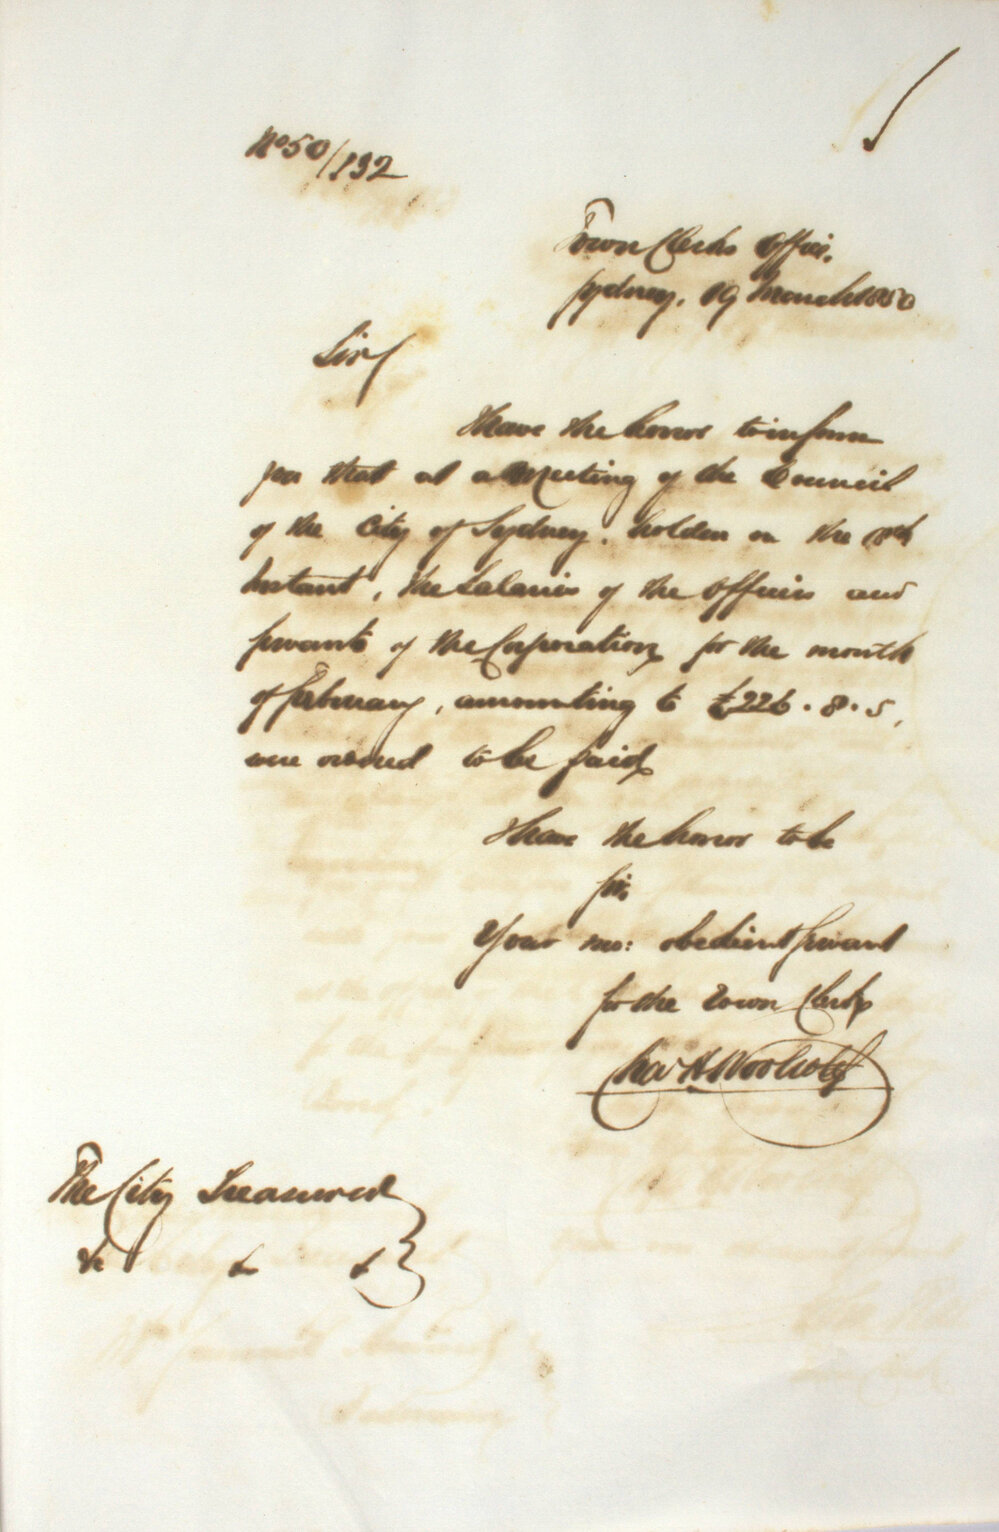 No 50/132
Town Clerks Office,
Sydney, 19 March 1850
Sir
I have the honor to inform
you that at a Meeting of the Council
of the City of Sydney, holden on the 18th
Instant, the Salaries of the Officers and
Servants of the Corporation for the month
of February, amounting to £226.8.5,
were ordered to be paid
I have the honor to be
Sir,
Your mo: obedient Servant
for the Town Clerk
Chas H Woolcott
The City Treasurer
&c &c &c